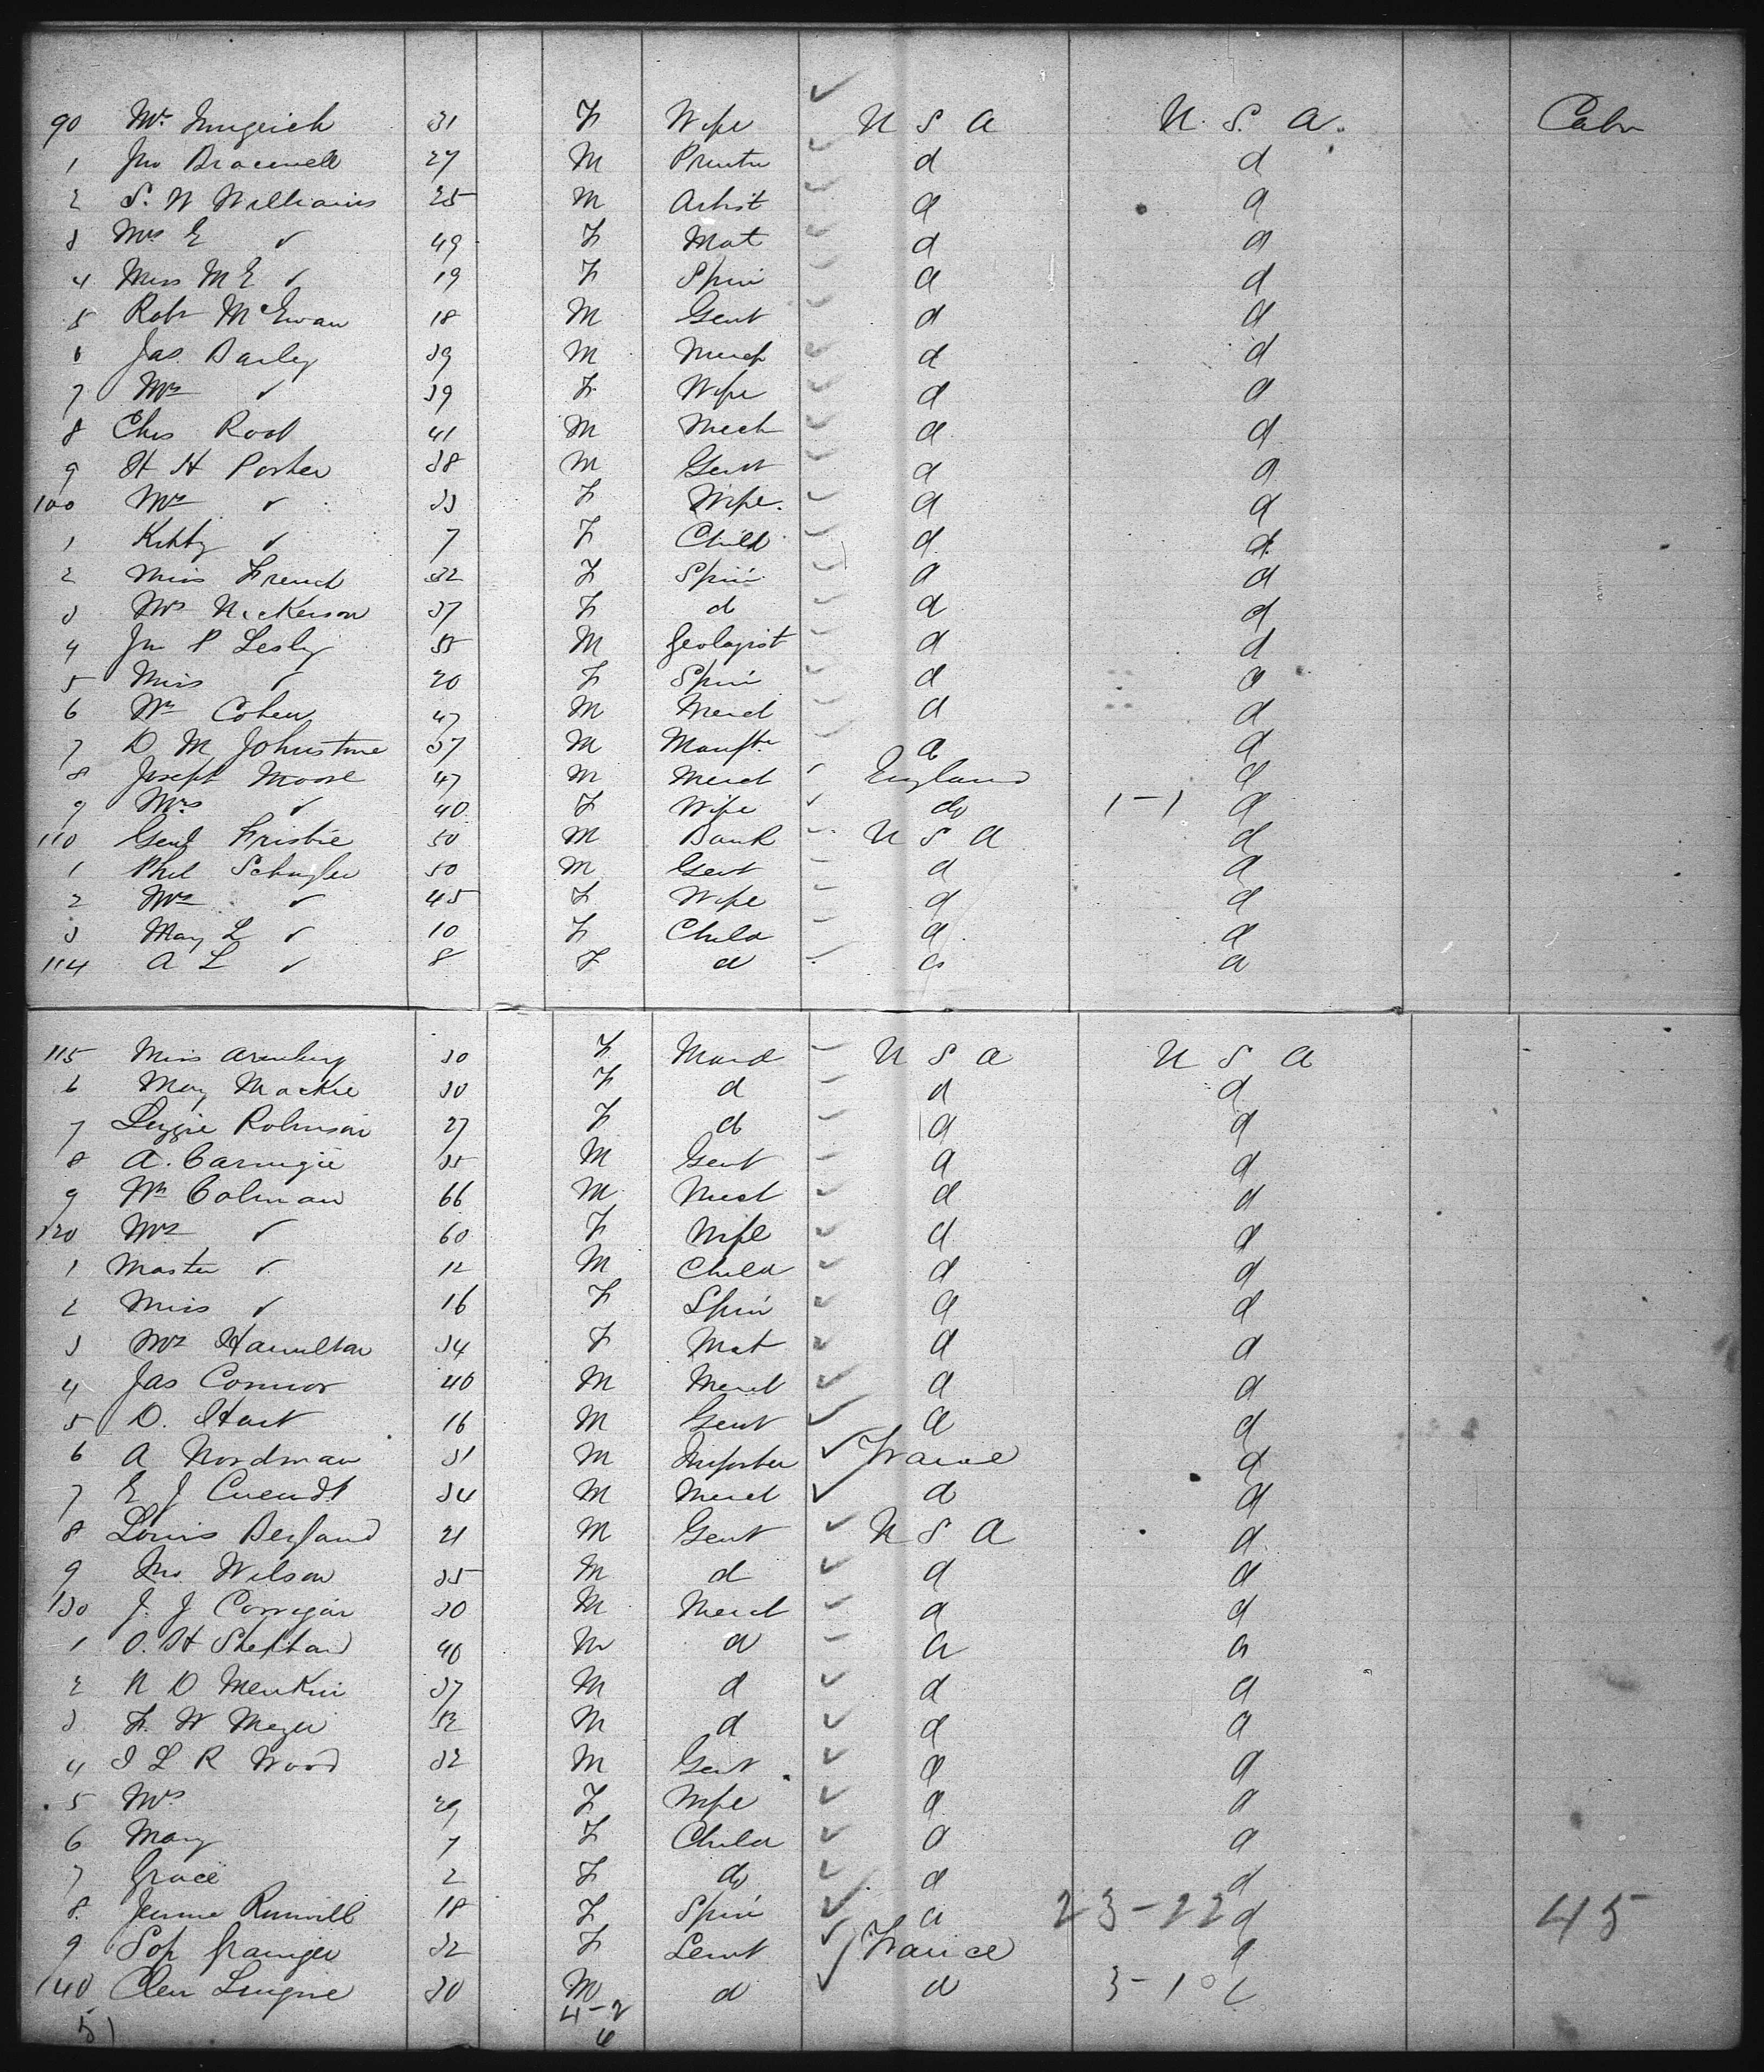 90 Mrs 31 F Wife U S A U. S. A. Cabn
1 Jno Bracewell 27 M Printr d d
2 S. W Williams 25 M Artist d d
3 Mrs E " 49 F Mat d d
4 Miss M E " 19 F Spin d d
5 Robt McEwan 18 M Gent d d
6 Jas. Barley 39 M Merch d d
7 Mrs " 39 F Wife d d
8 Chs Root 41 M Mech d d
9 H H Porter 38 M Gent d d
100 Mrs " 33 F Wife. d d
1 Kitty " 7 F Child d d
2 Miss French 32 F Spin d d
3 Mrs Nickerson 37 F d d d
4 Jno P Lesley 55 M Geologist d d
5 Miss " 20 F Spin d d
6 Wm Cohen 47 M Merct d d
7 D. M Johnstone 37 M Manftr d d
8 Joseph Moore 47 M Merct England d
9 Mrs " 40 F Wife do 1-1 d
110 Genl Frisbie 50 M Bank U S A d
1 Phil Schuyler 50 M Gent d d
2 Mrs " 45 F Wife d d
3 May L " 10 F Child d d
114 A L " 8 F d d d
115 Miss 30 F Maid U S A U S A
6 Mary Mackie 30 F d d d
7 Lizzie Robinson 27 F d d d
8 A. Carnegie 35 M Gent d d
9 Wm Colman 66 M Merct d d
120 Mrs " 60 F Wife d d
1 Master " 12 M Child d d
2 Miss " 16 F Spin d d
3 Mrs Hamilton 34 F Mat d d
4 Jas Connor 40 M Merct d d
5 D. Hart 16 M Gent d d
6 A Nordman 31 M Importer France d
7 E J Cuendt 34 M Merct d d
8 Louis 21 M Gent U S A d
9 Jno Wilson 35 M d d d
130 J. J Corrigan 30 M Merct d d
1 O. H Shephard 40 M d d d
2 N D Menkin 37 M d d d
3 F. W Meyer 52 M d d d
4 I L R Wood 32 M Gent d d
5 Mrs 29 F Wife d d
6 Mary 7 F Child d d
7 Grace 2 F do d d
8. Jennie 18 F Spin d 23-22 d 45
9 Sop Grainger 32 F Servt France d
140 Clen 30 M d d 3-1
51 4-2
6